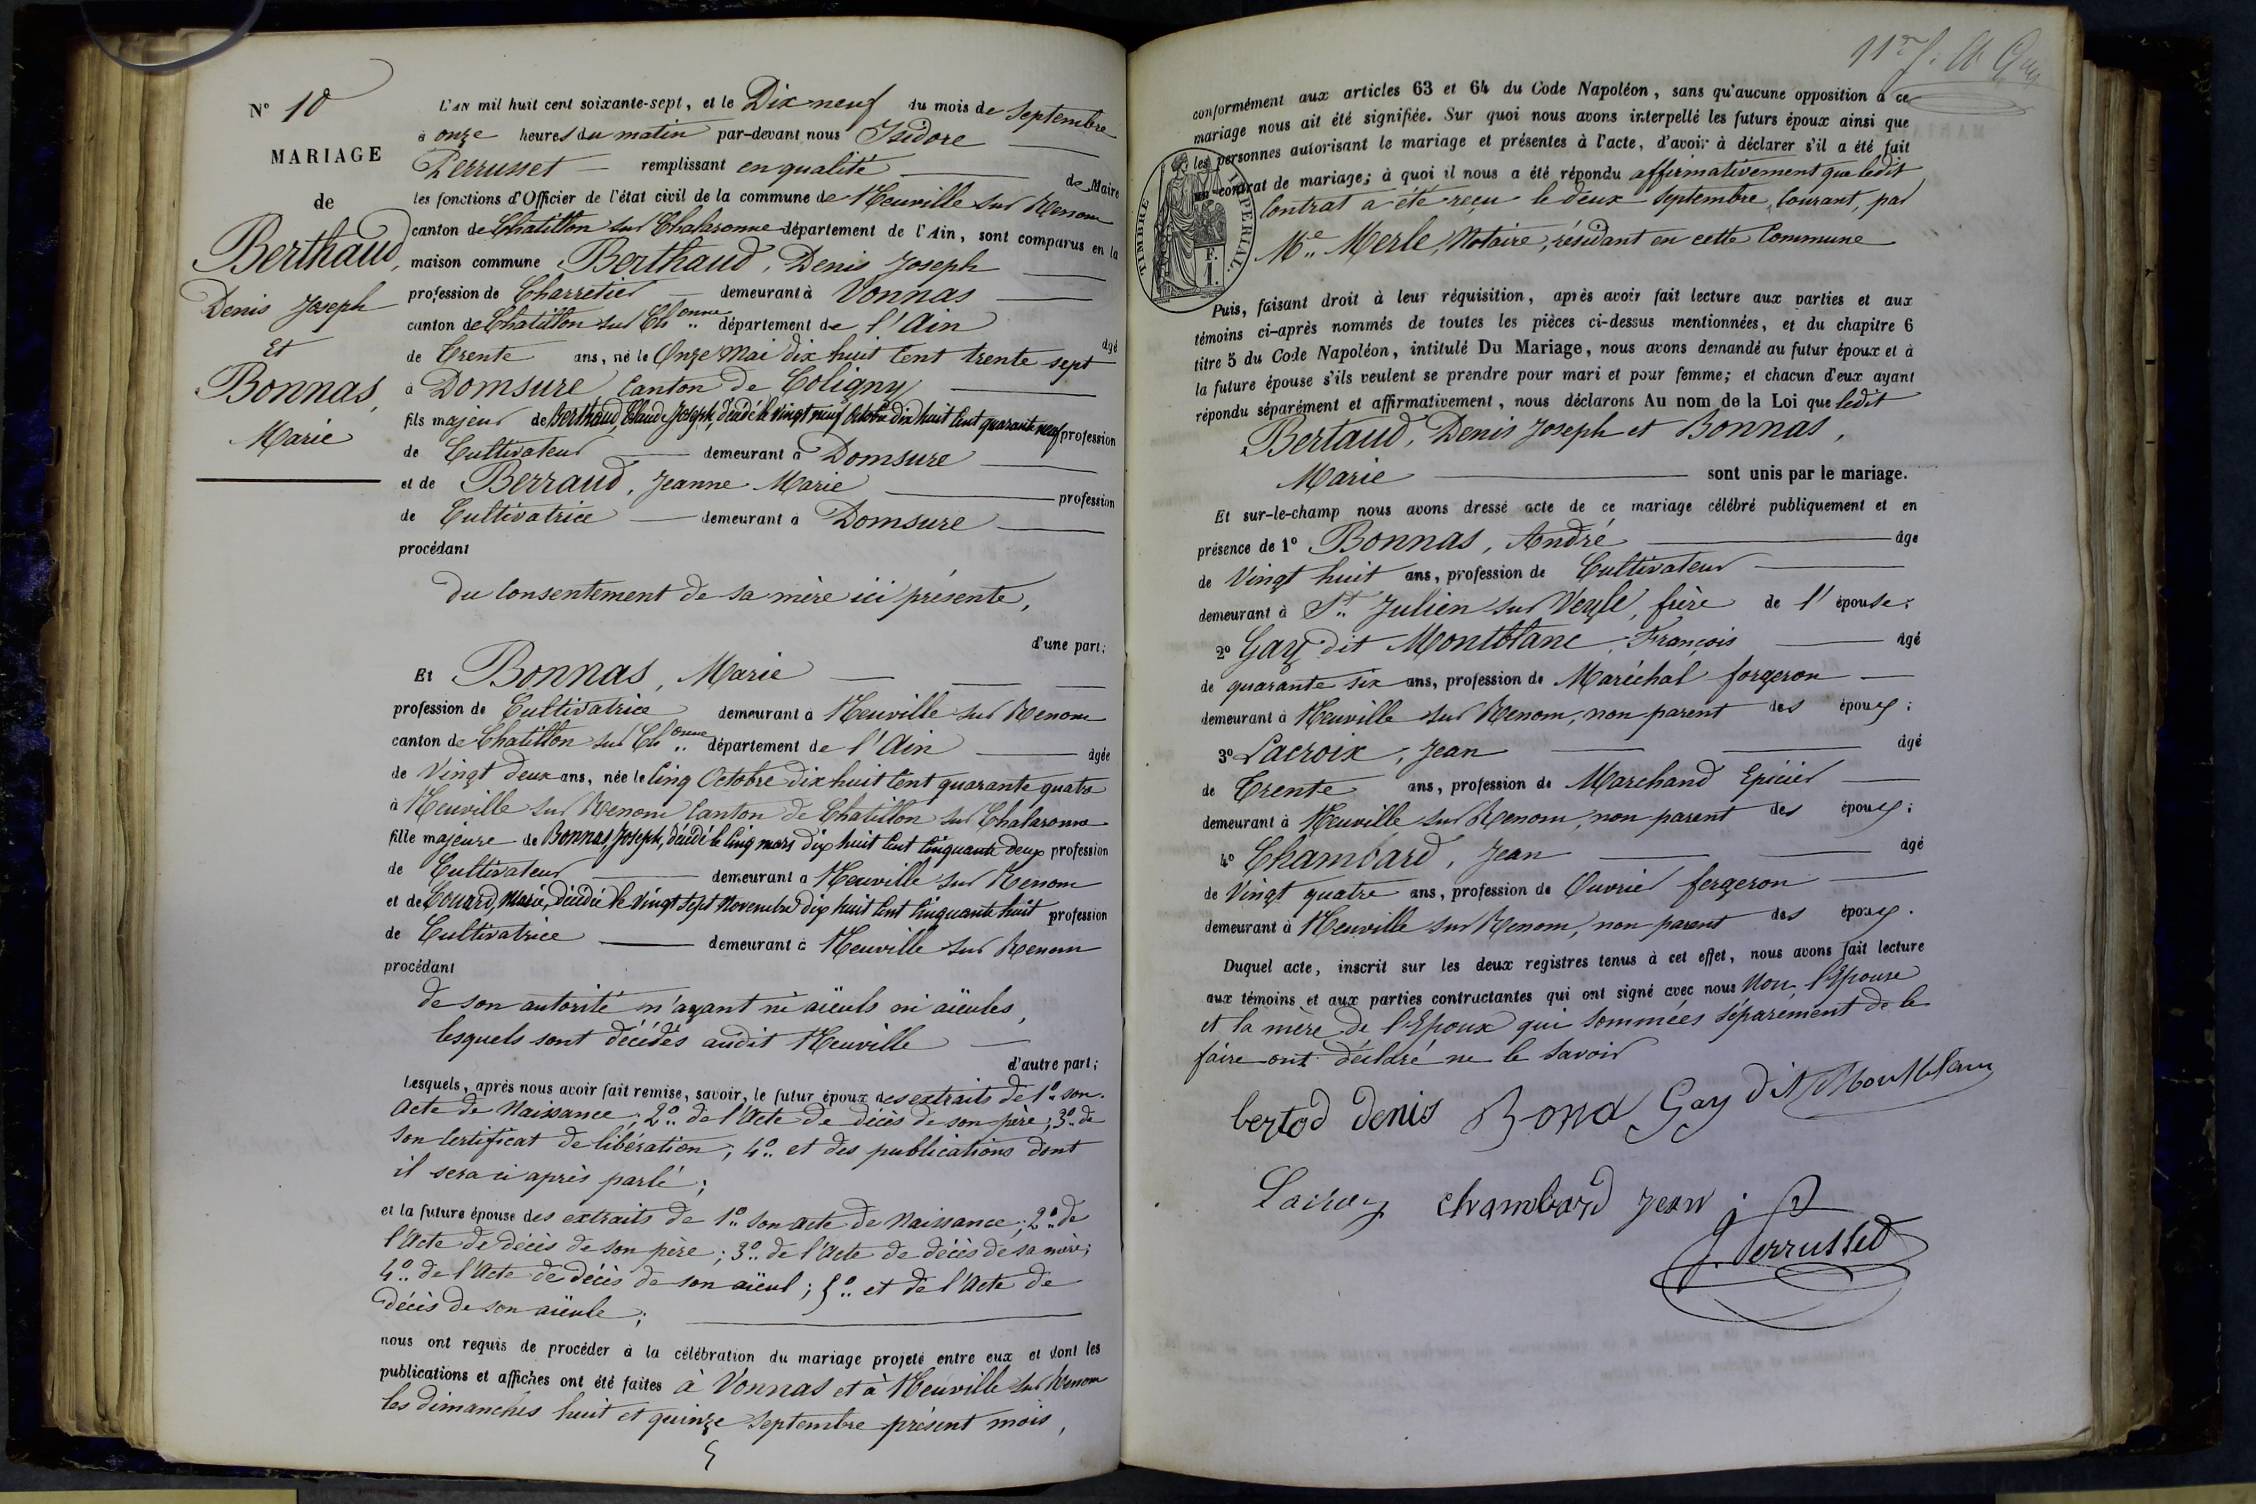 N° 10
MARIAGE
de
Berthaud,
Denis Joseph
Et
Bonnas,
Marie
L'AN mil huit cent soixante-sept, et le Dix neuf du mois de Septembre
à onze heures du matin par-devant nous Isidore
Perrusset remplissant en qualité de Maire
les fonctions d'Officier de l'état civil de la commune de Neuville sur Renom
canton de Chatillon sur Chalaronne département de l'Ain, sont comparus en la
maison commune Berthaud, Denis Joseph
profession de Charretier demeurant à Vonnas
canton de Chatillon sur Ch.onne département de l'Ain âgé
de Trente ans, né le Onze Mai dix huit Cent trente sept
à Domsure Canton de Coligny
fils majeur de Berthaud Claude Joseph, décédé le Vingt neuf Octobre Dix huit Cent quarante neuf profession
de Cultivateur demeurant à Domsure
et de Berraud, Jeanne Marie profession
de Cultivatrice demeurant à Domsure
procédant
du Consentement de sa mère ici présente,
d'une part;
Et Bonnas, Marie
profession de Cultivatrice demeurant à Neuville sur Renom
canton de Chatillon sur Ch.onne département de l'Ain âgée
de Vingt deux ans, née le Cinq Octobre dix huit Cent quarante quatre
à Neuville sur Renom Canton de Chatillon sur Chalaronne
fille majeure de Bonnas Joseph, décédé le Cinq mars dix huit Cent Cinquante deux profession
de Cultivateur demeurant à Neuville sur Renom
et de Marie, décédée le Vingt sept Novembre dix huit Cent Cinquante huit profession
de Cultivatrice demeurant à Neuville sur Renom
procédant
de son autorité n'ayant ni aïeuls ni aïeules,
lesquels sont décédés audit Neuville
d'autre part;
Lesquels, après nous avoir fait remise, savoir, le futur époux des extraits de 1° son
Acte de Naissance; 2° de l'Acte de décès de son père; 3° de
son Certificat de libération; 4° et des publications dont
il sera ci après parlé;
et la future épouse des extraits de 1° son acte de Naissance; 2° de
l'Acte de décès de son père; 3° de l'Acte de décès de sa mère;
4° de l'Acte de décès de son aïeul; 5° et de l'Acte de
décès de son aïeule;
nous ont requis de procéder à la célébration du mariage projeté entre eux et dont les
publications et affiches ont été faites à Vonnas et à Neuville sur Renom
les dimanches huit et quinze Septembre présent mois,
conformément aux articles 63 et 64 du Code Napoléon, sans qu'aucune opposition à ce
mariage nous ait été signifiée. Sur quoi nous avons interpellé les futurs époux ainsi que
les personnes autorisant le mariage et présentes à l'acte, d'avoir à déclarer s'il a été fait
un contrat de mariage; à quoi il nous a été répondu affirmativement que ledit
Contrat a été reçu le deux Septembre, Courant, par
Me Merle, Notaire, résidant en cette Commune
TIMBRE IMPERIAL
1 F.
Puis, faisant droit à leur réquisition, après avoir fait lecture aux parties et aux
témoins ci-après nommés de toutes les pièces ci-dessus mentionnées, et du chapitre 6
titre 5 du Code Napoléon, intitulé Du Mariage, nous avons demandé au futur époux et à
la future épouse s'ils veulent se prendre pour mari et pour femme; et chacun d'eux ayant
répondu séparément et affirmativement, nous déclarons Au nom de la Loi que ledit
Bertaud, Denis Joseph et Bonnas,
Marie sont unis par le mariage.
Et sur-le-champ nous avons dressé acte de ce mariage célébré publiquement et en
présence de 1° Bonnas, André âge
de Vingt huit ans, profession de Cultivateur
demeurant à St Julien sur Veyle, frère de l'épouse;
2° Gay dit Montblanc, François âgé
de quarante six ans, profession de Maréchal forgeron
demeurant à Neuville sur Renom, non parent des époux;
3° Lacroix, Jean âgé
de Trente ans, profession de Marchand Epicier
demeurant à Neuville sur Renom, non parent des époux;
4° Chambard, Jean âgé
de Vingt quatre ans, profession de Ouvrier forgeron
demeurant à Neuville sur Renom, non parent des époux.
Duquel acte, inscrit sur les deux registres tenus à cet effet, nous avons fait lecture
aux témoins et aux parties contractantes qui ont signé avec nous Non, l'Epouse
et la mère de l'Epoux qui sommées séparément de le
faire ont déclaré ne le savoir
bertod denis Bona Gay dit Montblanc
Lacroix chambard jean
J. Perrusset